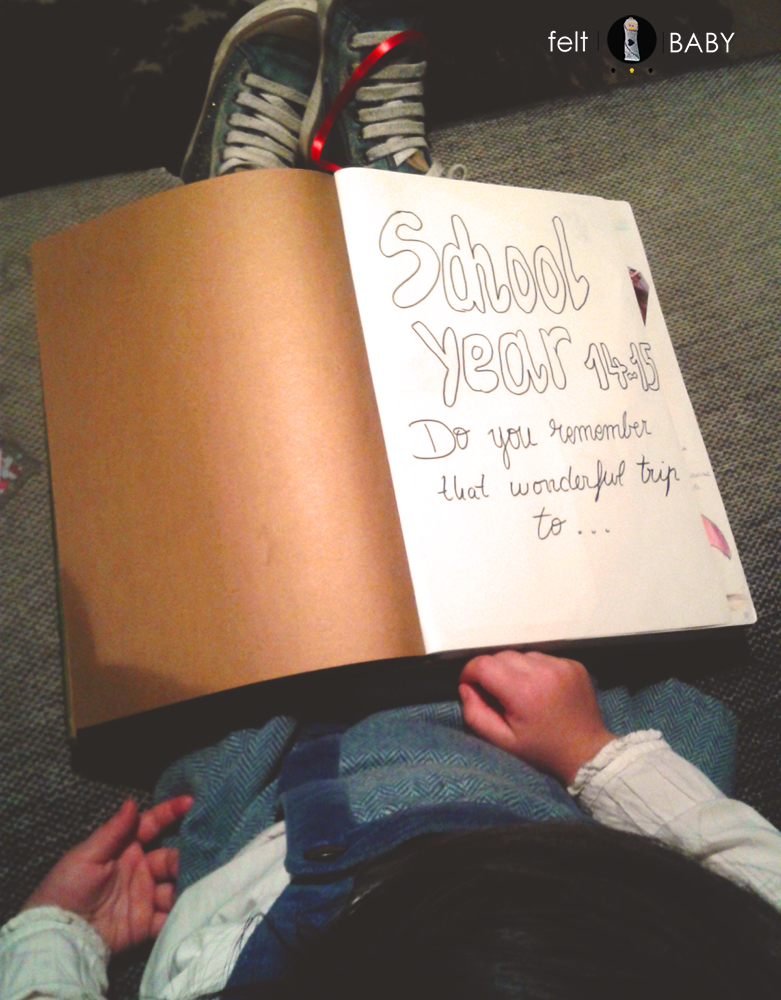 felt BABY
School
year 14-15
Do you remember
that wonderful trip
to...